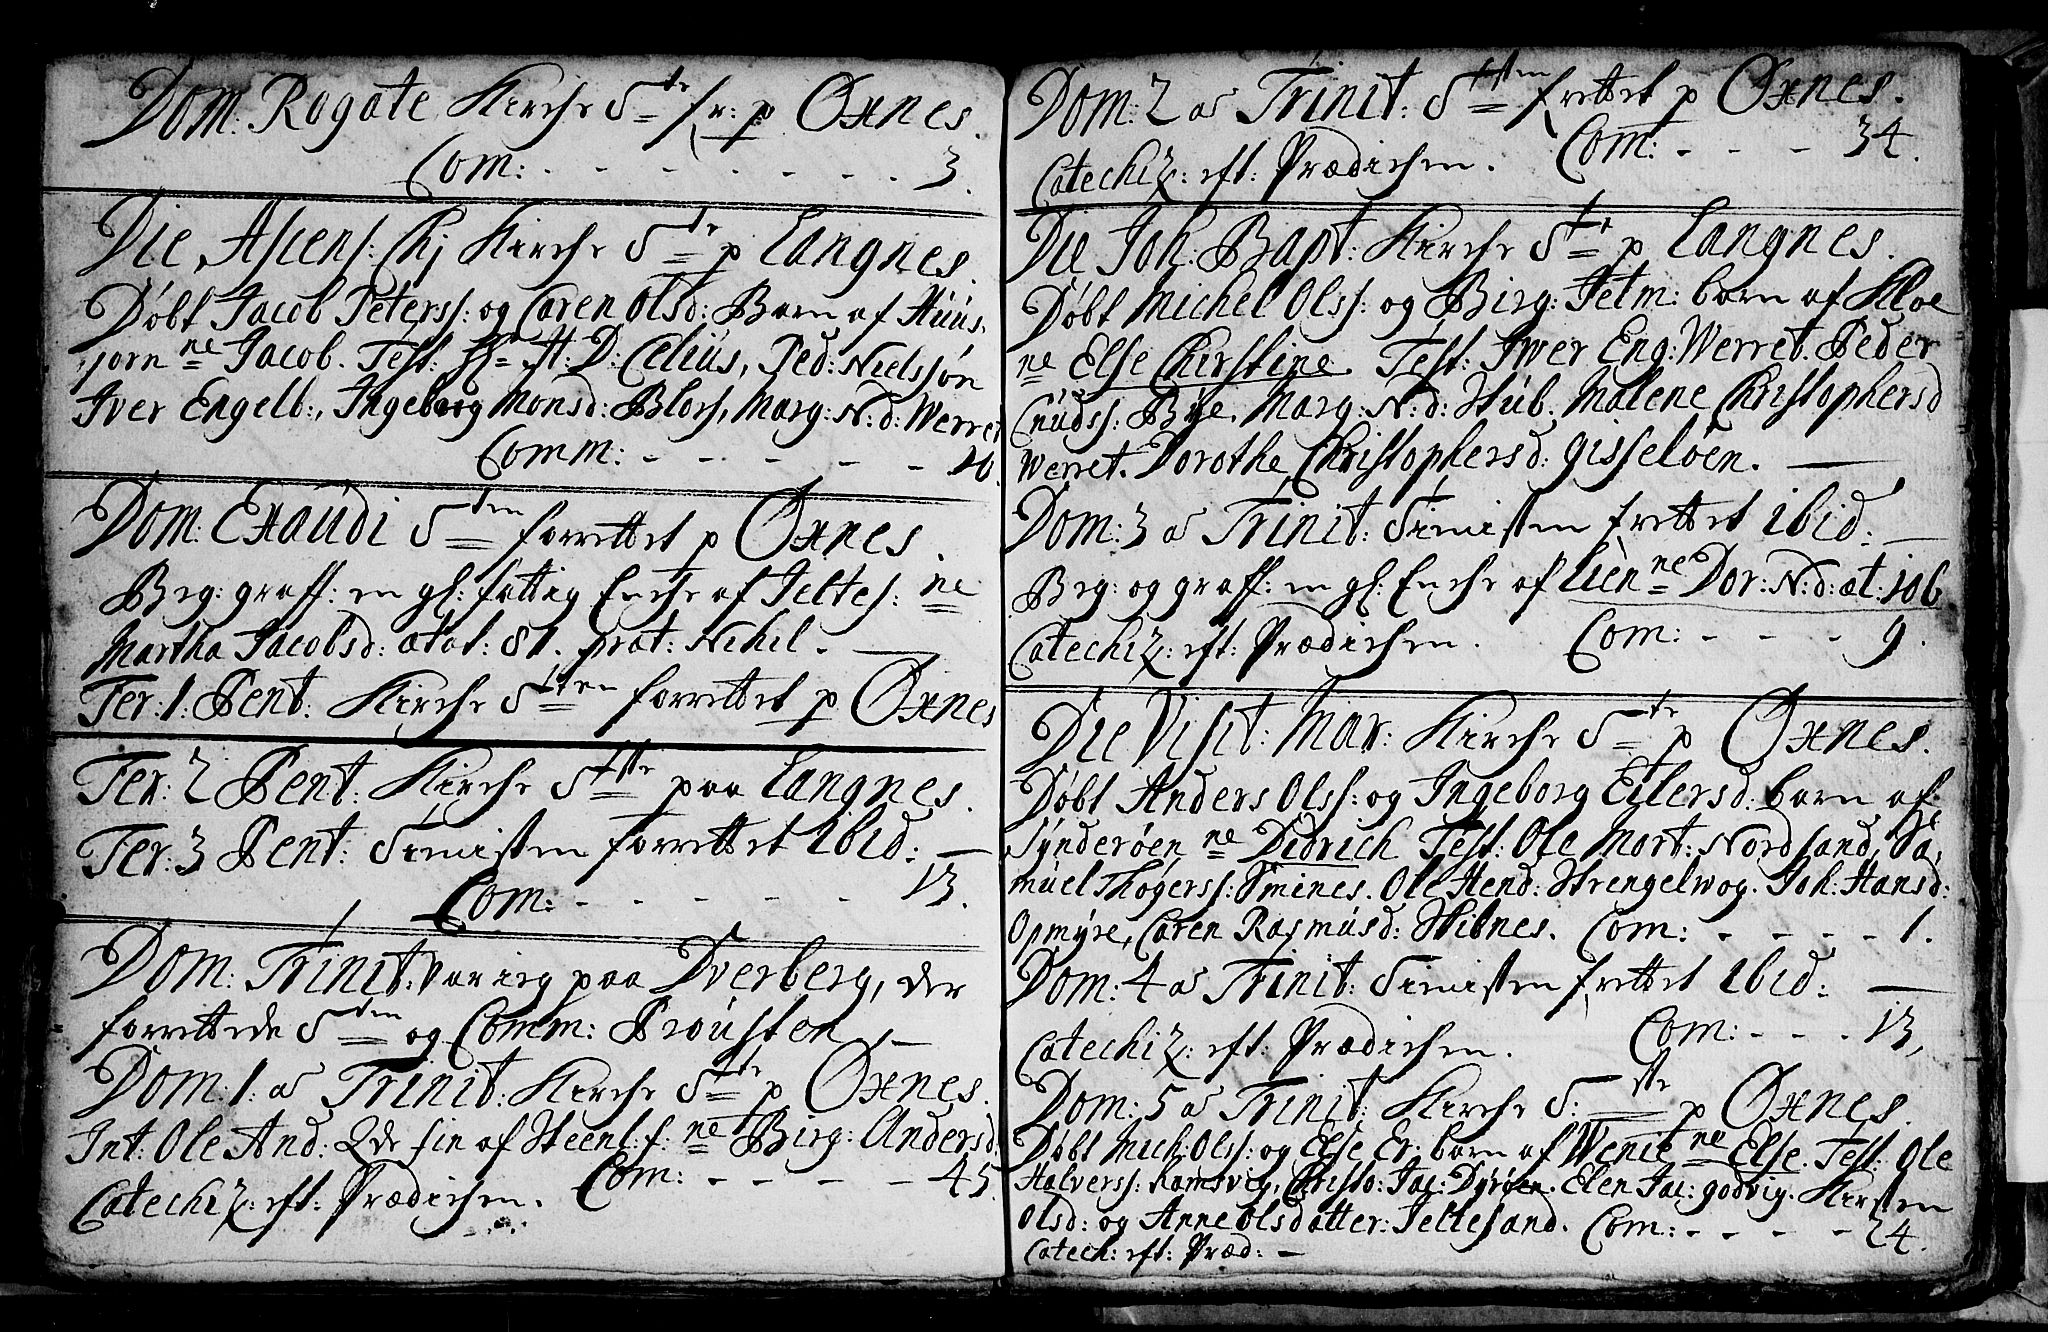 Dom: Rogate Kirche S te fr: p Øxnes.
Com: - - - - - - - 3.
Die Ascens: Chj Kirche S te p Langnes.
Døbt Jacob Peterss: og Caren Olsd: Barn af Huus-
jorn ne Jacob. Test: Hr H: D: Celius, Ped: Nielssøn
Iver Engelb:, Ingeborg Monsd: Blors, Marg: N: d: Werret
Comm: - - - - - 20.
Dom: Exaudi S ten forrettet p Øxnes.
Beg: graff: en gl: fattig Enche af Jeltes: ne
Martha Jacobsd: ætat: 81. præt: Nihil. —
Fer: 1: Pent: Kirche S ten forrettet p Øxnes
Fer: 2 Pent: Kirche S ste paa Langnes.
Fer: 3 Pent: Tienisten forrettet ibid: —
Com: - - - - - 13.
Dom: Trinit: var ieg paa Dverberg, der
forrettede S ten og Comm: Prousten —
Dom: 1: a Trinit: Kirche S te p Øxnes.
Int: Ole And: Qde fin af Steenl: f: ne Birg: Andersd:
Catechiz: eft: Prædichen. Com: - - - - 45.
Dom: 2 a Trinit: S sten frettet p Øxnes.
Catechiz: eft: Prædichen. Com: - - - 34.
Die Joh: Bapt: Kirche S te p Langnes.
Døbt Michel Olss: og Birg: Jelm: barn af Kloe
ne Else Chirstine. Test: Iwer Eng: Werret. Peder
Cnudss: Bye. Marg: N: d: Stub. Malene Christophersd
Werret. Dorothe Christophersd: Gisseløen. —
Dom: 3 a Trinit: Tienisten frettet ibid: —
Beg: og graff: en gl: Enche af Lien ne Dor: N: d: æt: 106
Catechiz: eft: Prædichen. Com: - - - 9.
Die Visit: Mar: Kirche S te p Øxnes.
Døbt Anders Olss: og Ingeborg Eilersd: barn af
Synderøen ne Didrich Test: Ole Mort: Nordsand, Sa-
muel Thøgerss: Smines. Ole Hend: Strengelwog. Joh: Hansd:
Opmyre, Caren Rasmusd: Skibnes. Com: - - - - 1.
Dom: 4 a Trinit: Tienisten frettet ibid: —
Catechiz: eft: Prædichen. Com: - - - 13,
Dom: 5 a Trinit: Kirche S: ste p Øxnes.
Døbt Mich: Olss: og Else Er: barn af Wenie ne Else. Test: Ole
Halverss: Ramsvig, Christo: Jac: Dyrøen. Elen Jac: godvig. Kirsten
Olsd: og Anne Olsdatter: Jeltesand. Com: - - - - 24.
Catech: eft: Præd: —